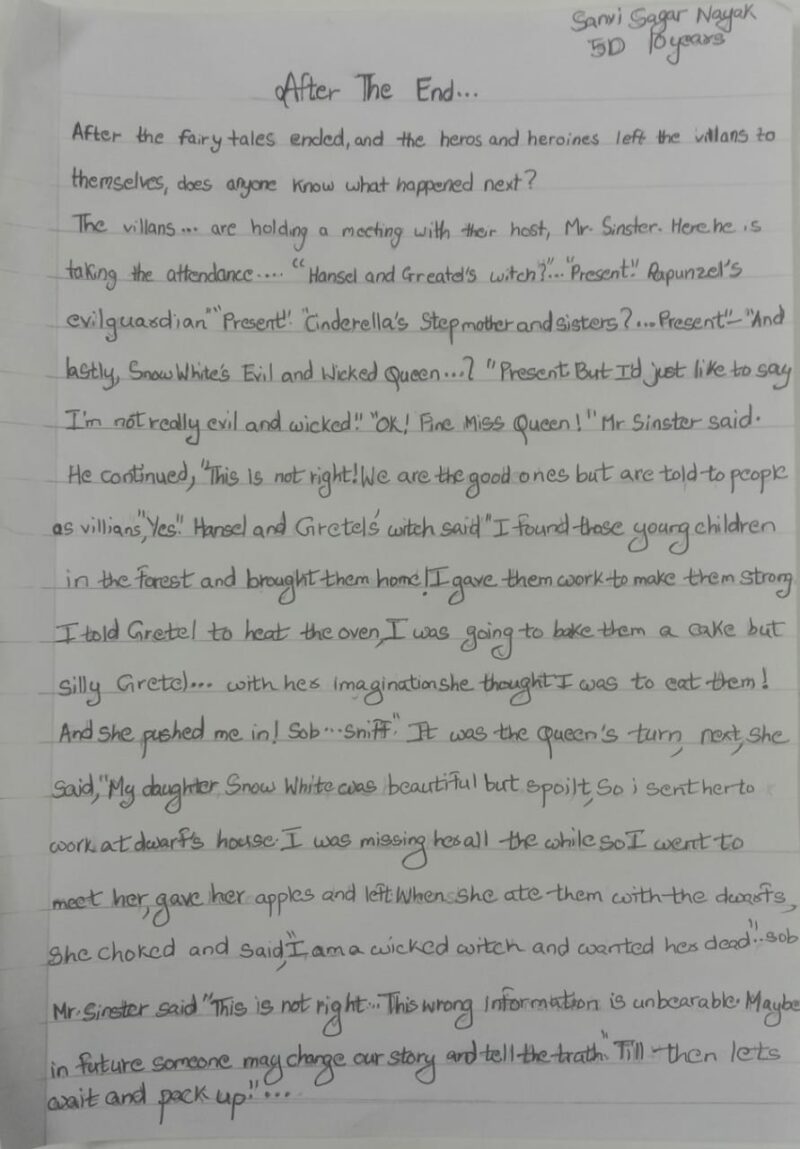 Sanvi Sagar Nayak
5D 10 years
After The End...
After the fairy tales ended, and the heros and heroines left the villans to
themselves, does anyone know what happened next?
The villans... are holding a meeting with their host, Mr. Sinster. Here he is
taking the attendance.... "Hansel and Greatel's witch?"... "Present." Rapunzel's
evil guardian" "Present!" "Cinderella's Stepmother and sisters?... Present"- "And
lastly, Snow White's Evil and Wicked Queen...? "Present But I'd just like to say
I'm not really evil and wicked!" "OK! Fine Miss Queen!" Mr Sinster said.
He continued, "This is not right! We are the good ones but are told to people
as villians", "Yes". Hansel and Gretels' witch said "I found those young children
in the forest and brought them home! I gave them work to make them strong
I told Gretel to heat the oven, I was going to bake them a cake but
silly Gretel... with her imagination she thought I was to eat them!
And she pushed me in! Sob... sniff." It was the queen's turn, next, she
said, "My daughter Snow White was beautiful but spoilt, so i sent her to
work at dwarf's house. I was missing her all the while so I went to
meet her, gave her apples and left When she ate them with the dwarfs,
she choked and said, "I am a wicked witch and wanted her dead".. sob
Mr. Sinster said "This is not right... This wrong information is unbearable. Maybe
in future someone may change our story and tell the trath." Till then lets
wait and pack up"...